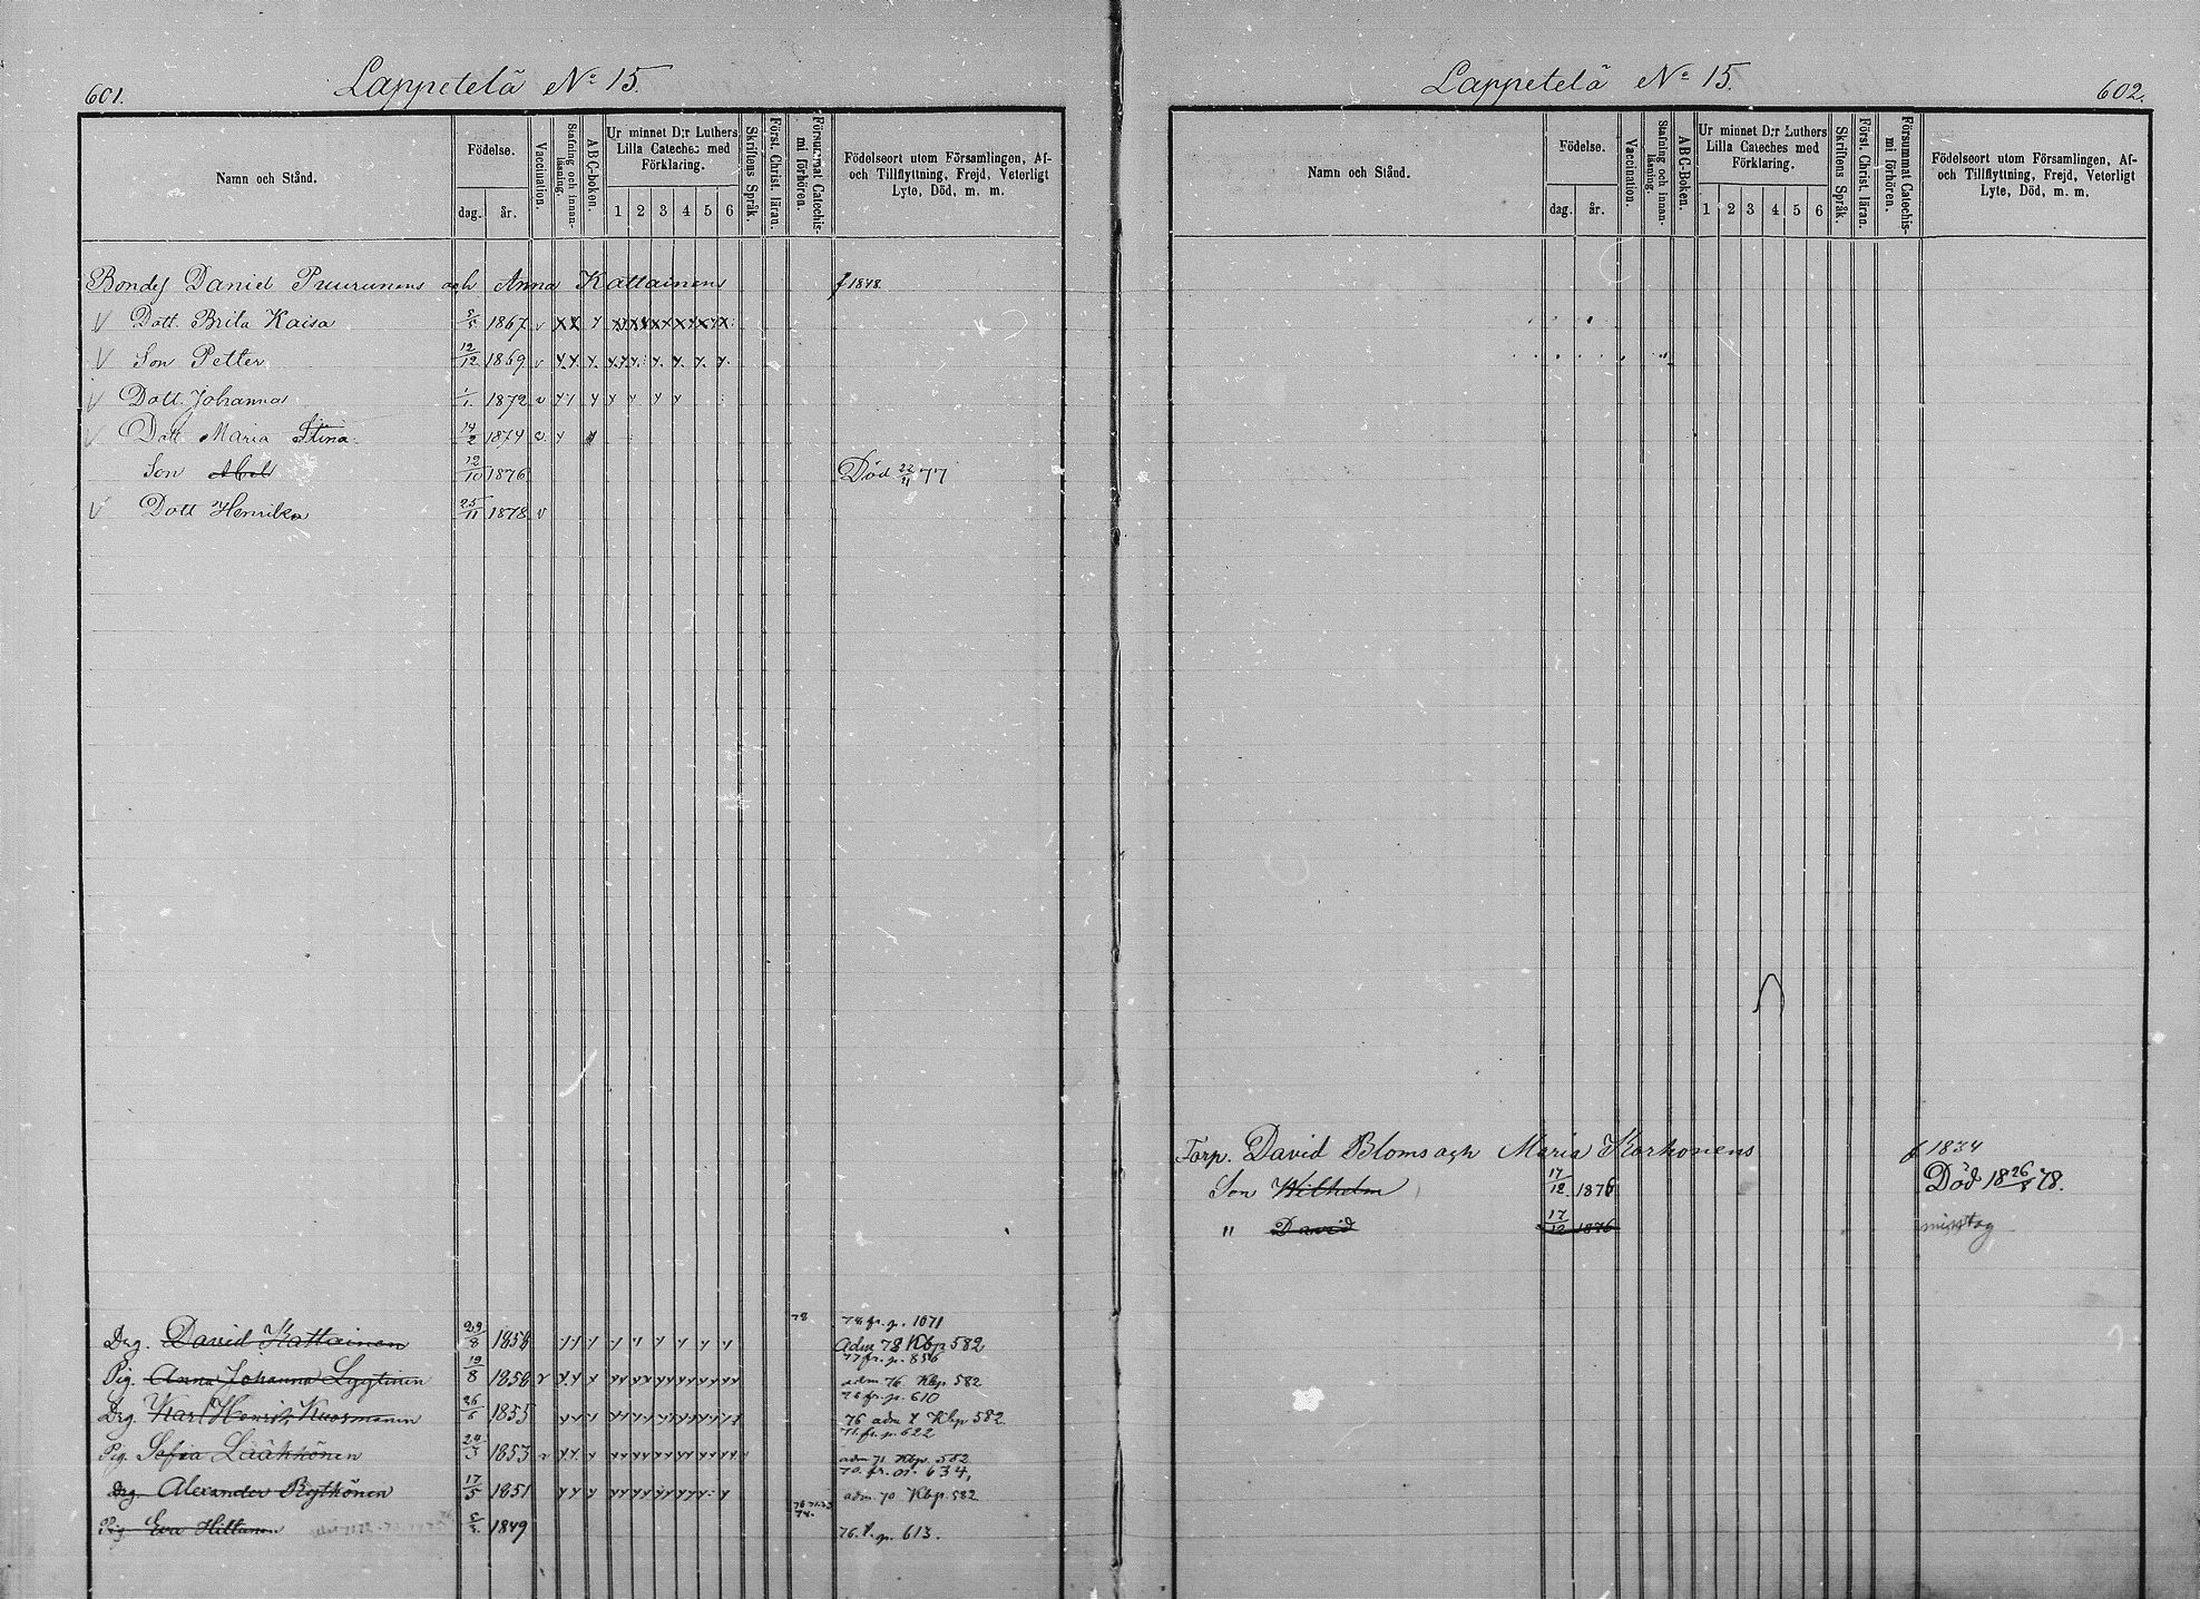 601.
Lappetelä No 15.
Namn och Stånd.
Födelse.
dag. år.
Vaccination.
Stafning och innanläsning.
ABC-boken.
Ur minnet D:r Luthers Lilla Cateches med Förklaring.
1 2 3 4 5 6
Skriftens Språk.
Först. Christ. läran.
Försummat Catechismi förhören.
Födelseort utom Församlingen, Af- och Tillflyttning, Frejd, Veterligt Lyte, Död, m. m.
Bondes Daniel Puurunens och Anna Kattainens f 1848.
V Dott. Brita Kaisa 1867 v
V Son Petter 12/12 1869 v
V Dott. Johanna 1/1 1872 v
V Dott. Maria Stina 14/2 1874 v
Son Abel 12/10 1876 Död 22/11 77
V Dott Henrika 25/11 1878 v
78 78 fr. p. 1071
Drg. David Kattainen 29/8 1858 Adm 78 Kbp 582
77 fr. p. 856
Pig. Anna Johanna Lyytinen 19/8 1858 v adm 76 Kbp 582
76 fr. p. 610
Drg. Karl Henrik Kuosmanen 26/6 1855 76 adm Kbp 582.
71. fr. p. 622
Pig. Sofia Lääkkönen 24/3 1853 v adm 71 Kbp. 582
70. fr. 634,
Drg. Alexander Rytkönen 17/5 1851 adm. 70 Kbp. 582
Pig. Eva Hiltunen 1849 76. p. 613.
Lappetelä No 15.
602.
Namn och Stånd.
Födelse.
dag. år.
Vaccination.
Stafning och innanläsning.
ABC-Boken.
Ur minnet D:r Luthers Lilla Cateches med Förklaring.
1 2 3 4 5 6
Skriftens Språk.
Först. Christ. läran.
Försummat Catechismi förhören.
Födelseort utom Församlingen, Af- och Tillflyttning, Frejd, Veterligt Lyte, Död, m. m.
Torp. David Bloms och Maria Korhonens f 1834
Son Wilhelm 17/12 1876 Död 18 26/8 78.
" David 17/12 1876 misstag